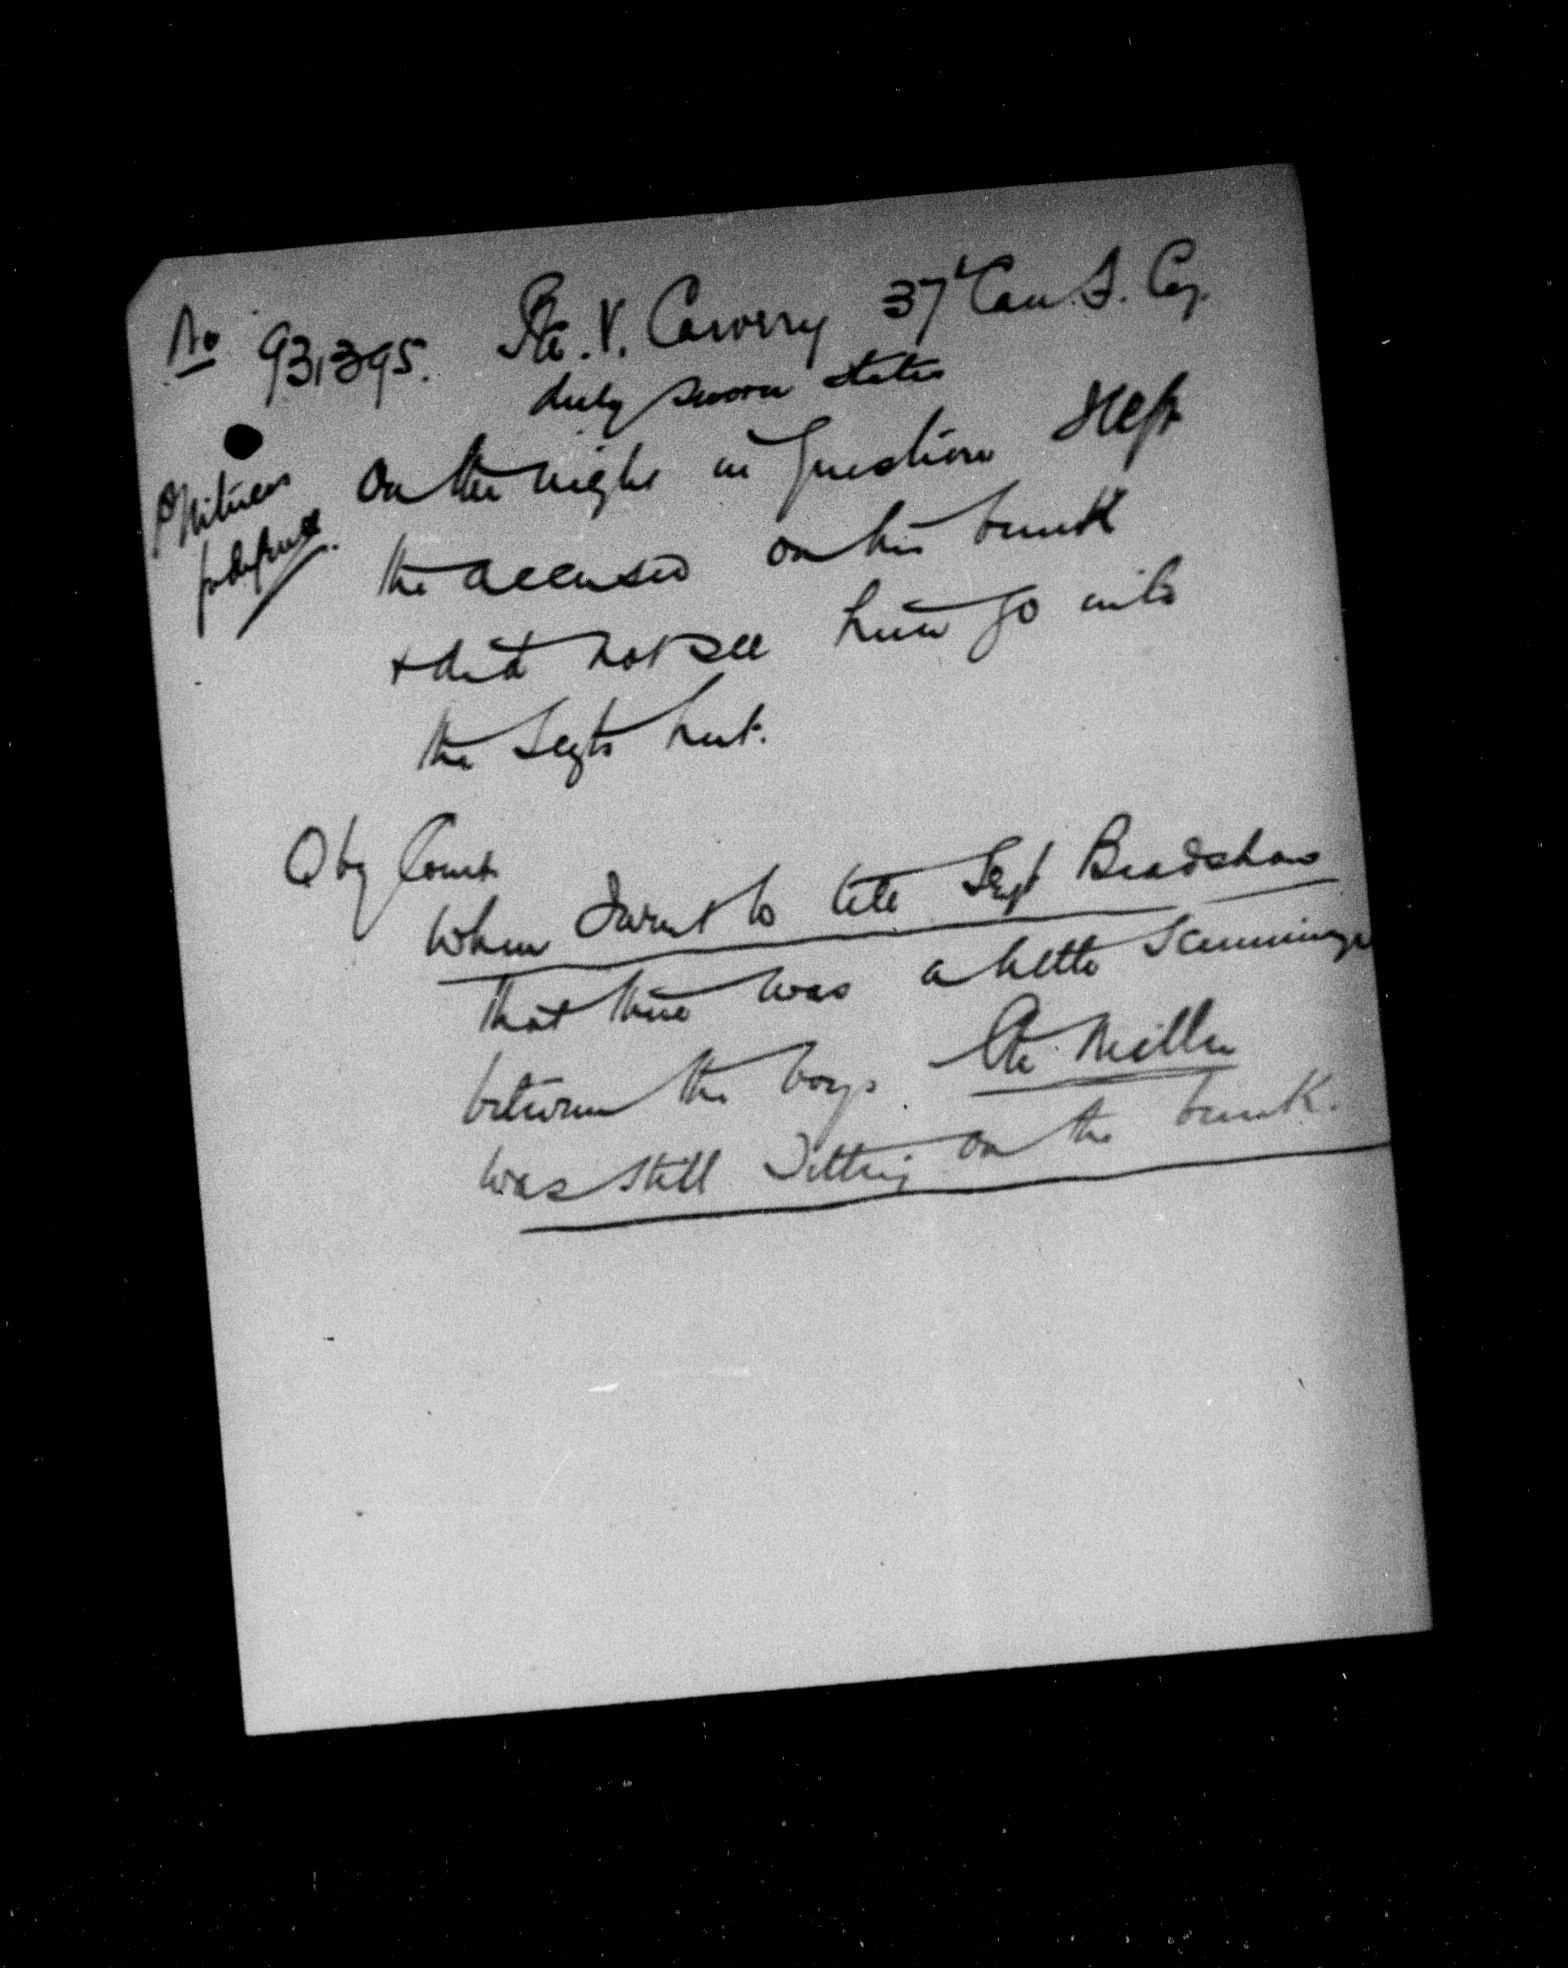 No 931395. Pte. V. Carvery 37th Can. F. Coy.
duly sworn states
Witness
for defense.
On the night in question I left
the accused on his bunk
+ did not see him go into
the Sergts hut.
Q by Court
When I went to tell Sergt Bradshaw
that there was a little scrimmage
between the boys. Pte Miller
was still sitting on the bunk.